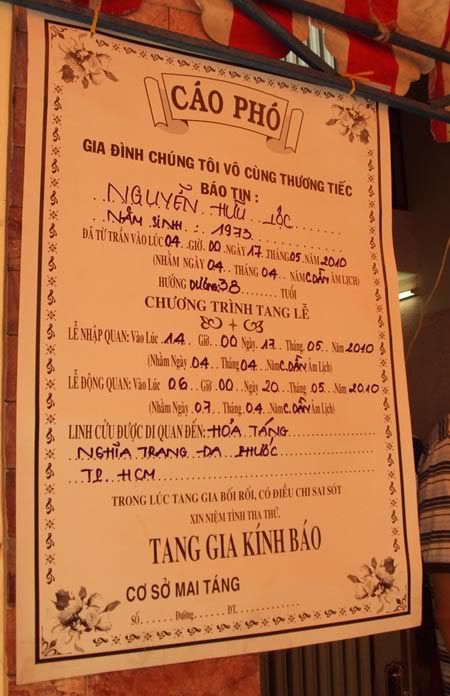 CÁO PHÓ
GIA ĐÌNH CHÚNG TÔI VÔ CÙNG THƯƠNG TIẾC
BÁO TIN :
NGUYỄN HỮU LỘC
NĂM SINH : 1973
ĐÃ TỪ TRẦN VÀO LÚC 04 GIỜ 00 NGÀY 17 THÁNG 05 NĂM 2010
(NHẰM NGÀY 04 THÁNG 04 NĂM C.DẦN ÂM LỊCH)
HƯỞNG DƯƠNG: 38 TUỔI
CHƯƠNG TRÌNH TANG LỄ
LỄ NHẬP QUAN: Vào Lúc 14 Giờ 00 Ngày 17 Tháng 05 Năm 2010
(Nhằm Ngày 04 Tháng 04 Năm C.DẦN Âm Lịch)
LỄ ĐỘNG QUAN: Vào Lúc 06 Giờ 00 Ngày 20 Tháng 05 Năm 2010
(Nhằm Ngày 07 Tháng 04 Năm C.DẦN Âm Lịch)
LINH CỬU ĐƯỢC DI QUAN ĐẾN: HỎA TÁNG
NGHĨA TRANG ĐA PHƯỚC
TP. HCM
TRONG LÚC TANG GIA BỐI RỐI, CÓ ĐIỀU CHI SAI SÓT
XIN NIỆM TÌNH THA THỨ.
TANG GIA KÍNH BÁO
CƠ SỞ MAI TÁNG
SỐ......Đường........ĐT..............